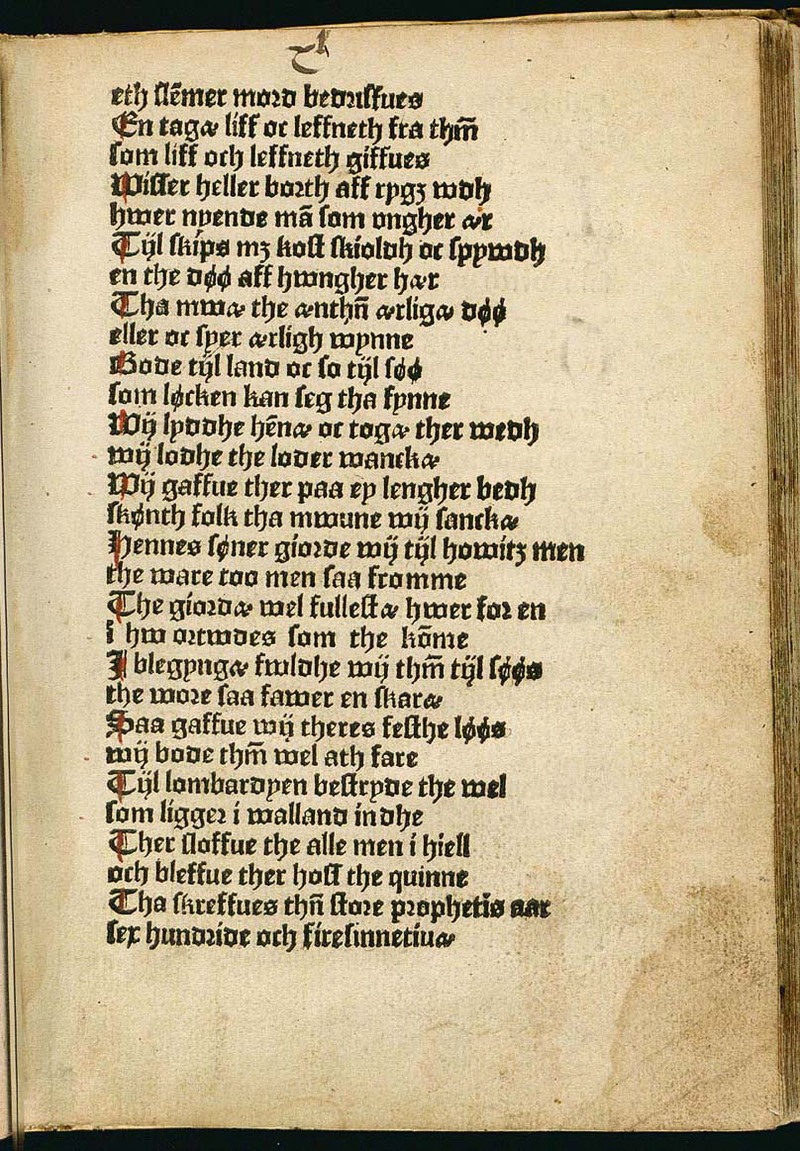 eth slēmer mord bedriffues
En tagæ liff oc leffneth fra thm̄
som liff och leffneth giffues
Wisser heller borth aff rygꝫ wdh
hwer nyende mā som ongher ær
Tijl skips mꝫ kost skioldh oc spywdh
en the døø aff hwngher hær
Tha mwæ the ænthn̄ ærligæ døø
eller oc syer ærligh wynne
Bode tijl land oc so tijl søø
som løcken kan seg tha fynne
Wij lyddhe hēnæ oc togæ ther wedh
wij lodhe the loder wanckæ
Wij gaffue ther paa ey lengher bedh
skønth folk tha mwune wij sanckæ
Hennes søner giorde wij tijl howitꝫ men
the ware too men saa fromme
The giordæ wel fullestæ hwer for en
i hw ortwdes som the kōme
I blegyngæ fwldhe wij thm̄ tijl søøs
the wore saa fawer en skaræ
Saa gaffue wij theres festhe løøs
wij bode thm̄ wel ath fare
Tijl lombardyen bestryde the wel
som ligger i walland indhe
Ther sloffue the alle men i hiell
och bleffue ther host the quinne
Tha skreffues thn̄ store prophetis aar
sex hundride och firesinnetiuæ